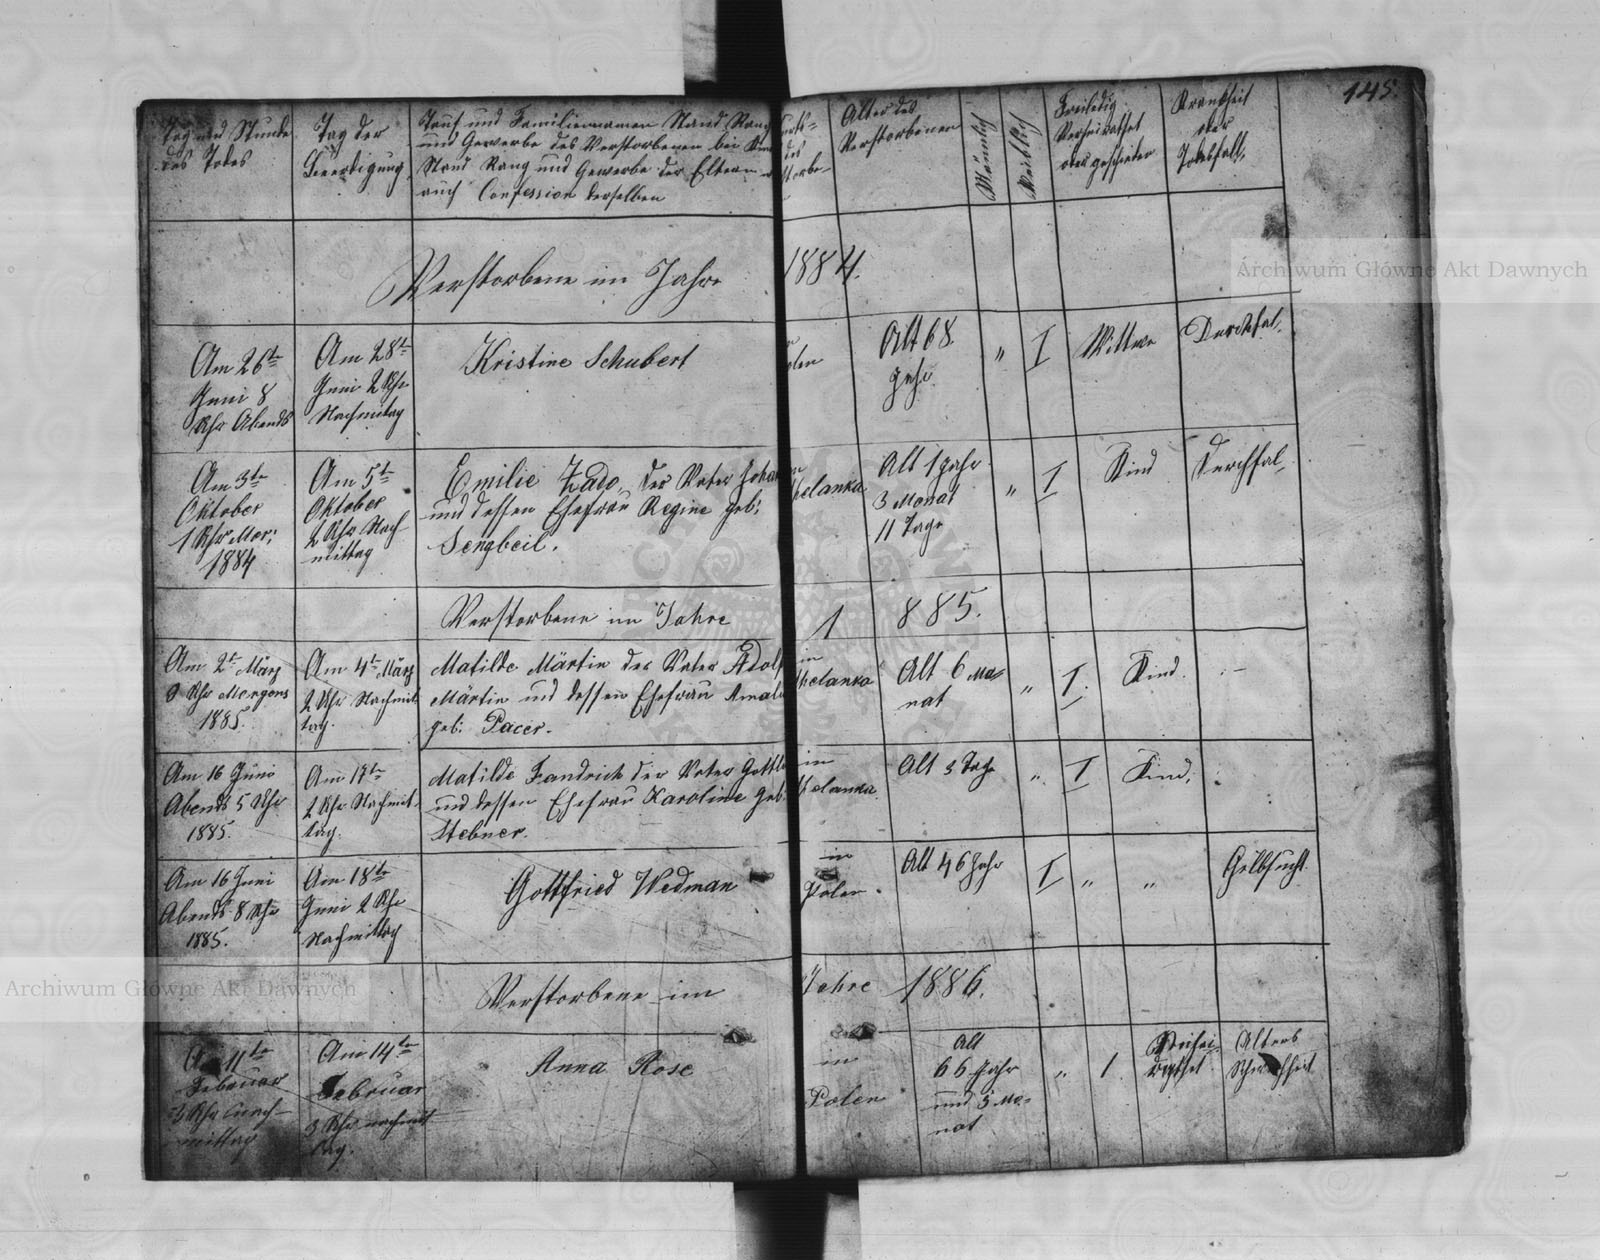 145.
Tag und Stunde
des Todes
Tag der
Beerdigung
Tauf und Familiennamen Stand Rang
und Gewerbe des Verstorbenen bei
Stand Rang und Gewerbe der Eltern
auch Confession derselben
Alter des
Verstorbenen
Männlich
Weiblich
Freiledig
Verheirathet
oder geschieden
Krankheit
oder
Todesfall
Verstorbene im Jahre 1884.
Am 26te
Juni 8
Uhr Abends
Am 28te
Juni 2 Uhr
Nachmitag
Kristine Schubert
Polen
Alt 68
Jahr
" I
Wittwe
Durchfal
Am 3te
Oktober
1 Uhr Mor:
1884
Am 5te
Oktober
2 Uhr Nach-
mittag
Emilie Zado, der Vater Johan
und dessen Ehefrau Regine geb:
Sengbeil.
in
helanka
Alt 1 Jahr
3 Monat
11 Tage
" I
Kind
Durchfal
Verstorbene im Jahre 1885.
Am 2te März
9 Uhr Morgens
1885.
Am 4te März
2 Uhr Nachmit-
tag.
Matilde Märtin der Vater Adolf
Märtin und dessen Ehefrau Amal
geb: Pacer.
in
helanka
Alt 6 Mo-
nat
" I.
Kind.
Am 16 Juni
Abends 5 Uhr
1885.
Am 17te
2 Uhr Nachmit-
tag.
Matilde Fandrich der Vater Gottl
und dessen Ehefrau Karoline geb:
Stebner.
in
helanka.
Alt 3 Tage
" I
Kind,
Am 16 Juni
Abends 8 Uhr
1885.
Am 18te
Juni 2 Uhr
Nachmittag
Gottfried Wedman
in
Polen.
Alt 46 Jahr
I " "
Gelbsucht
Verstorbene im Jahre 1886.
Am 11te
Februar
3 Uhr nach-
mittag
Am 14te
Februar
3 Uhr nachmit
tag.
Anna Rose
in
Polen
Alt
66 Jahr
und 5 Mo-
nat
" 1.
Verhei-
rathet
Alters
Schwachheit
Archiwum Główne Akt Dawnych
Archiwum Główne Akt Dawnych